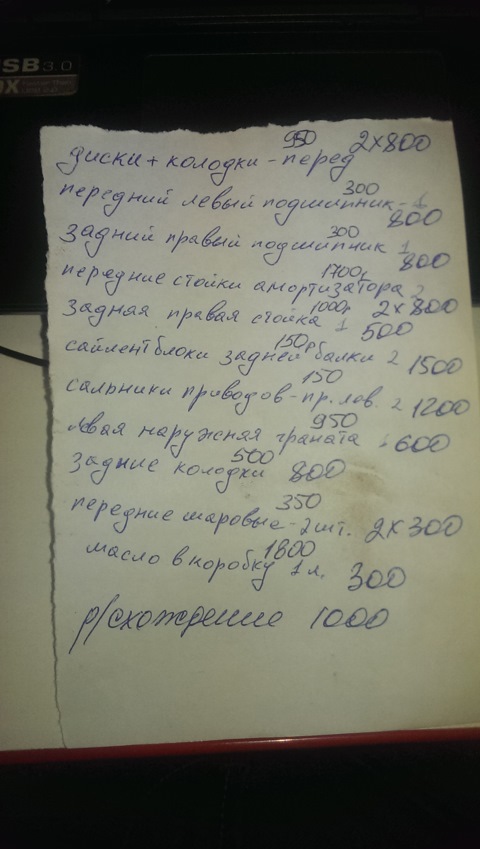 SB 3.0
950 2x800
диски + колодки - перед
300
передний левый подшипник - 1
300 800
задний правый подшипник 1
1700р 800
передние стойки амортизатора 2
1000р 2x800
задняя правая стойка 1
150р 500
сайлентблоки задней балки 2 1500
150
сальники приводов - пр. лев. 2 1200
950
левая наружняя граната 600
500
задние колодки 800
350
передние шаровые - 2 шт. 2x300
1800
масло в коробку 1 л. 300
р/схождение 1000